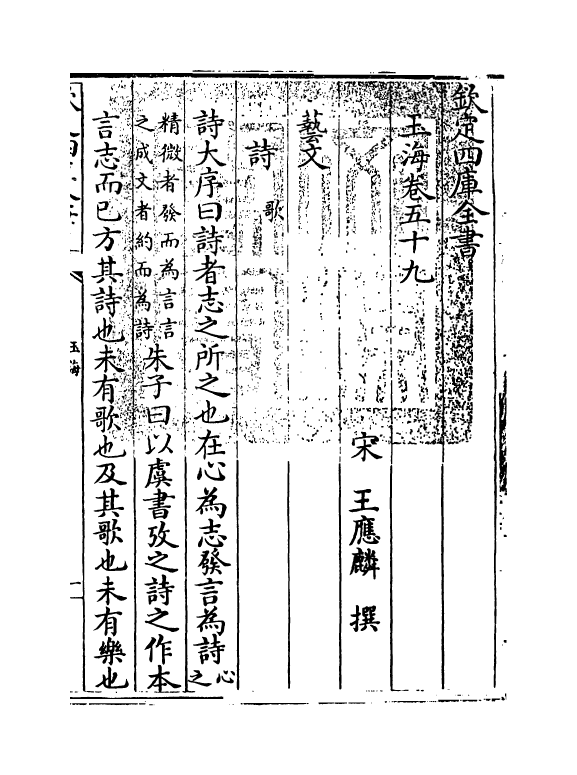 欽定四庫全書
玉海卷五十九
宋 王應麟 撰
藝文
詩 歌
詩大序曰詩者志之所之也在心為志發言為詩心之
精微者發而為言言之成文者約而為詩朱子曰以虞書攷之詩之作本
言志而已方其詩也未有歌也及其歌也未有樂也
玉海